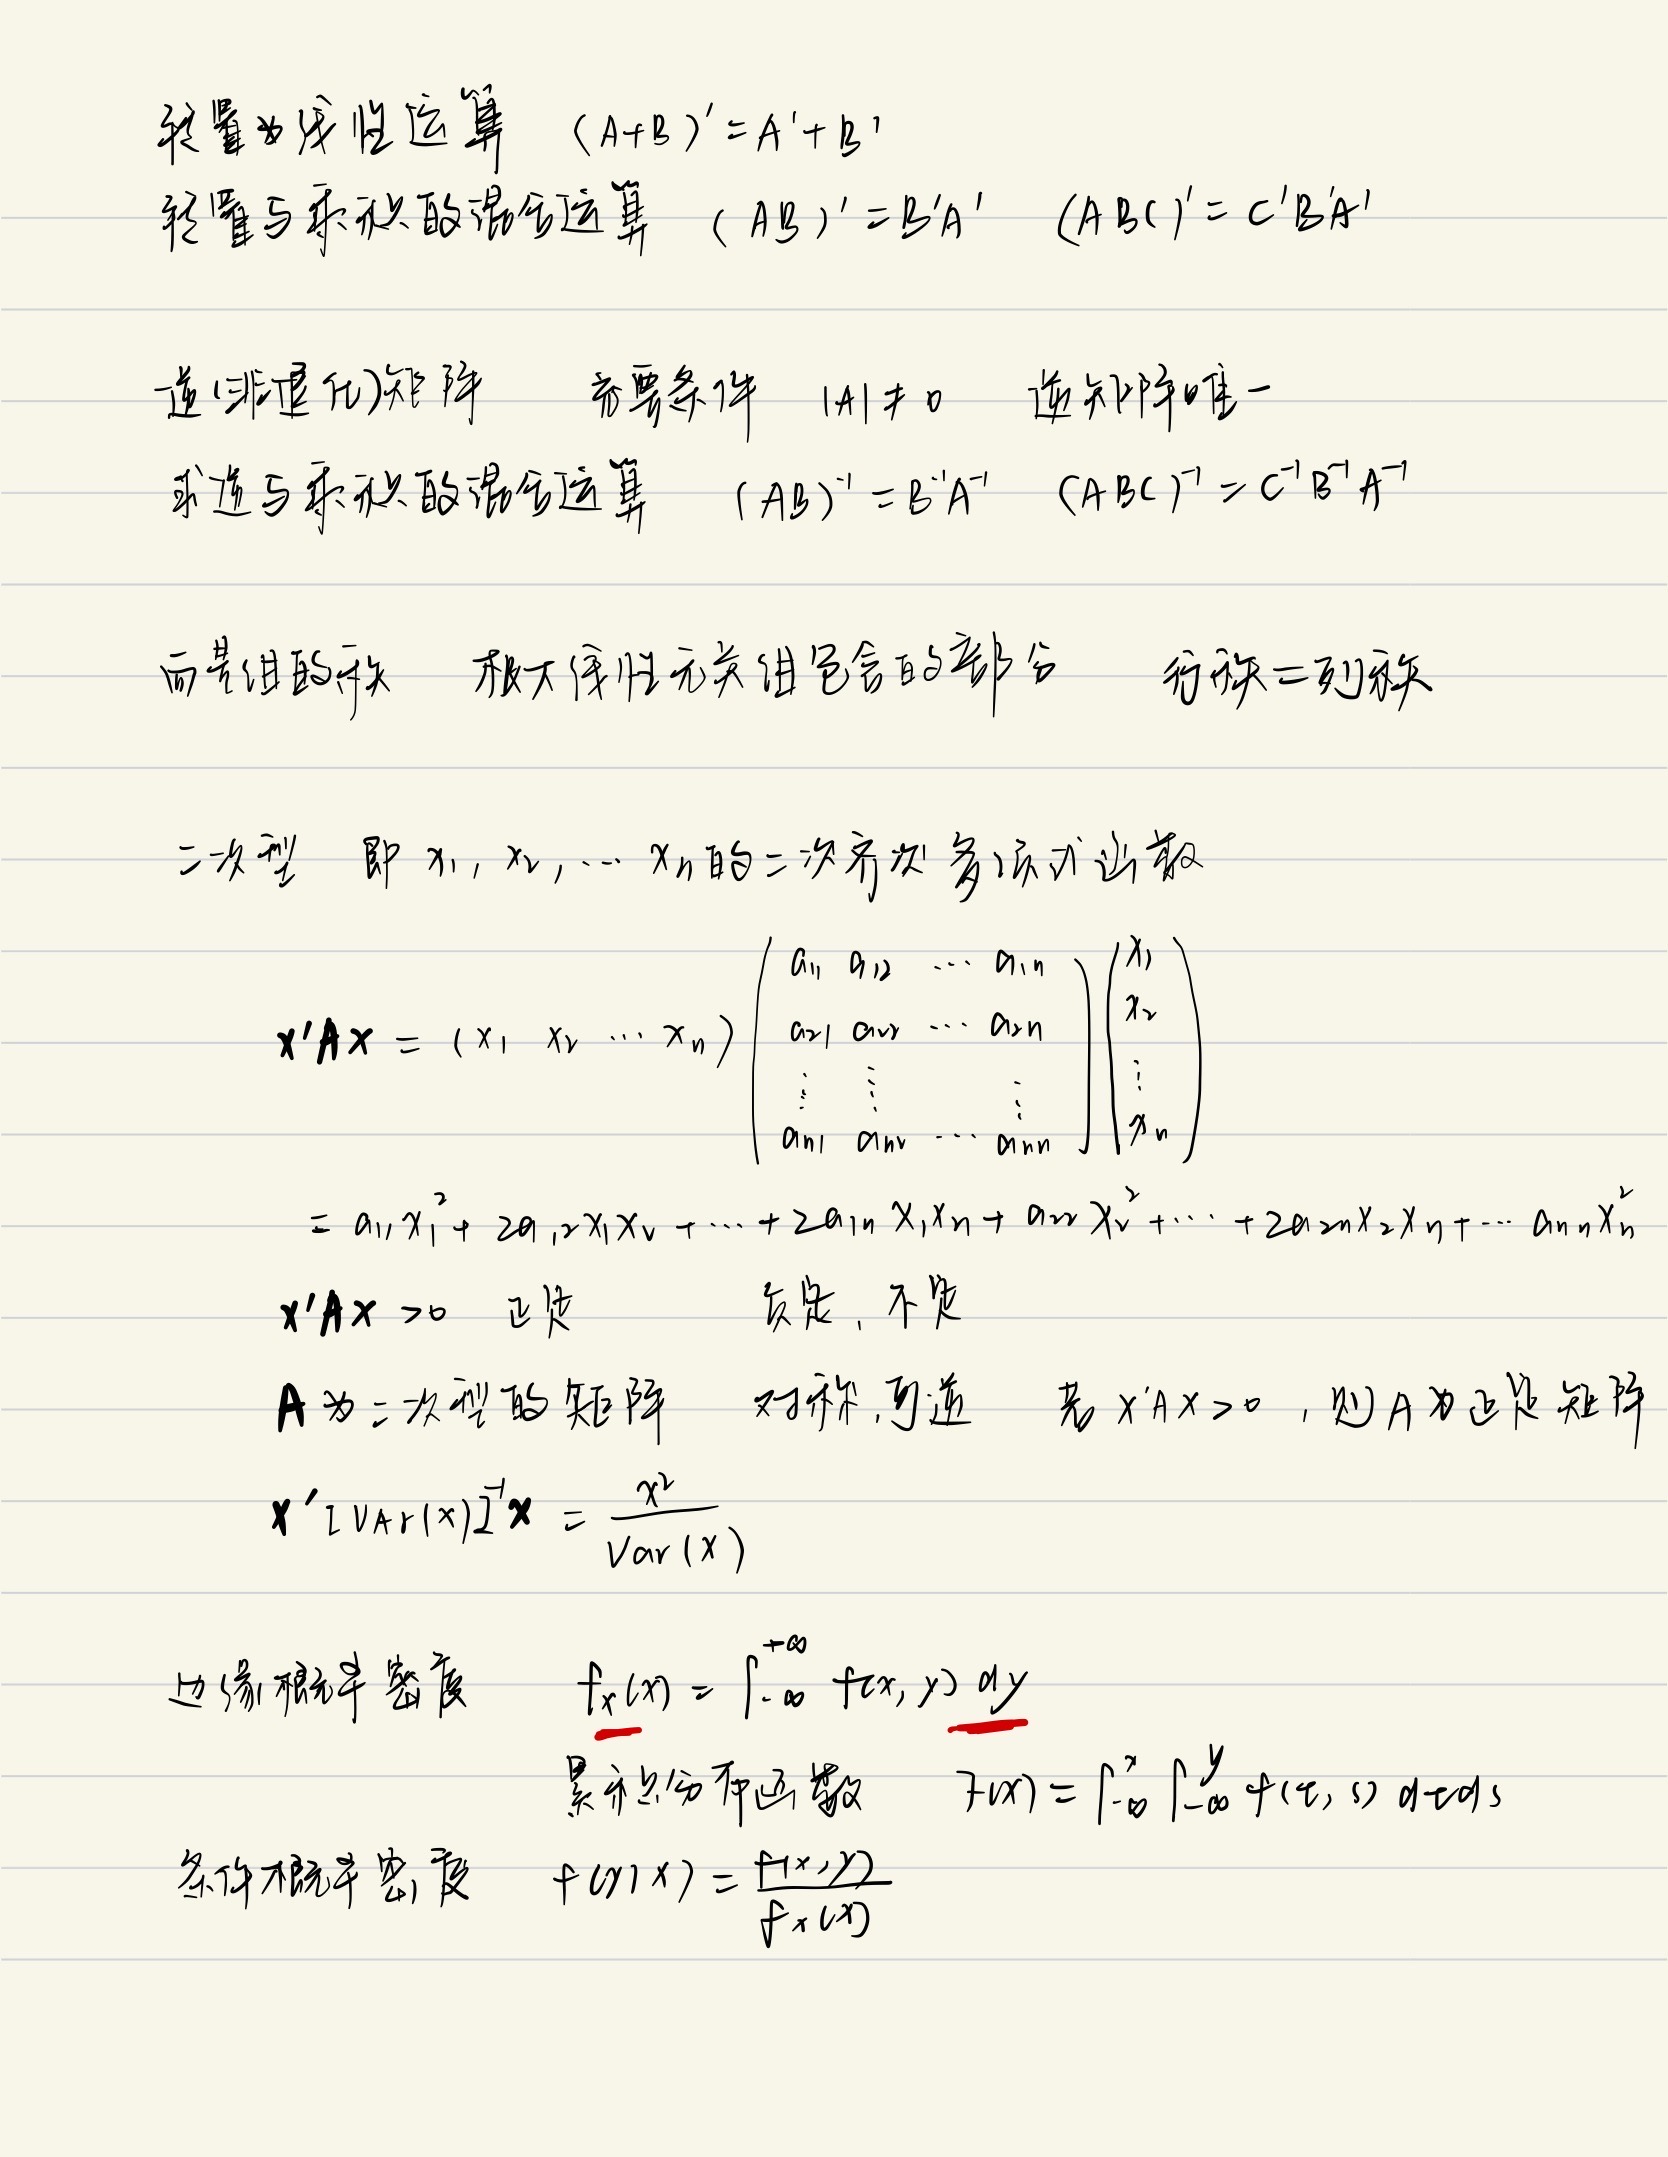 转置为线性运算 (A+B)' = A' + B'
转置与乘积的混合运算 (AB)' = B'A' (ABC)' = C'B'A'
逆(非退化)矩阵 充要条件 |A| ≠ 0 逆矩阵唯一
求逆与乘积的混合运算 (AB)⁻¹ = B⁻¹A⁻¹ (ABC)⁻¹ = C⁻¹B⁻¹A⁻¹
组的秩 极大线性无关组包含的部分 行秩=列秩
二次型 即 x₁, x₂, ... xₙ的二次齐次多项式函数
x'Ax = (x₁ x₂ ... xₙ) (a₁₁ a₁₂ ... a₁ₙ
a₂₁ a₂₂ ... a₂ₙ
⋮ ⋮ ⋮
aₙ₁ aₙ₂ ... aₙₙ) (x₁
x₂
⋮
xₙ)
= a₁₁x₁² + 2a₁₂x₁x₂ + ... + 2a₁ₙx₁xₙ + a₂₂x₂² + ... + 2a₂ₙx₂xₙ + ... aₙₙxₙ²
x'Ax >0 正定 负定, 不定
A为二次型的矩阵 对称,可逆 若 x'Ax>0 , 则A为正定矩阵
x'[VAr(x)]⁻¹x = x² / Var(x)
边缘概率密度 fₓ(x) = ∫₋∞⁺∞ f(x, y) dy
累积分布函数 F(x) = ∫₋∞ˣ ∫₋∞ʸ f(t, s) dtds
条件概率密度 f(y|x) = f(x,y) / fₓ(x)